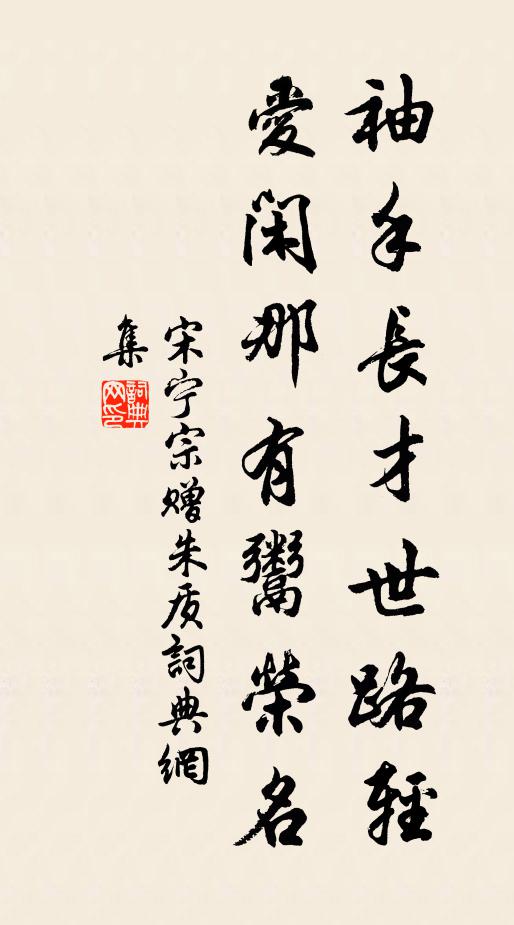 袖手長才世路輕
愛閑那有鬻榮名
宋宁宗赠朱质詞典網
集
詞典
网印